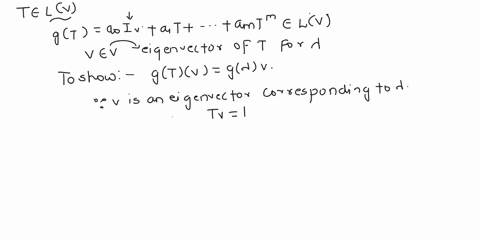 T ∈ L(V)
g(T) = a₀ I_v + a₁T + --- + a_mT^m ∈ L(V)
v ∈ V → eigenvector of T for λ
To show:- g(T)(v) = g(λ) v.
∵ v is an eigenvector corresponding to λ.
Tv = l